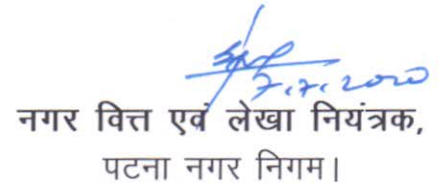 7.7.2020
नगर वित्त एवं लेखा नियंत्रक,
पटना नगर निगम।